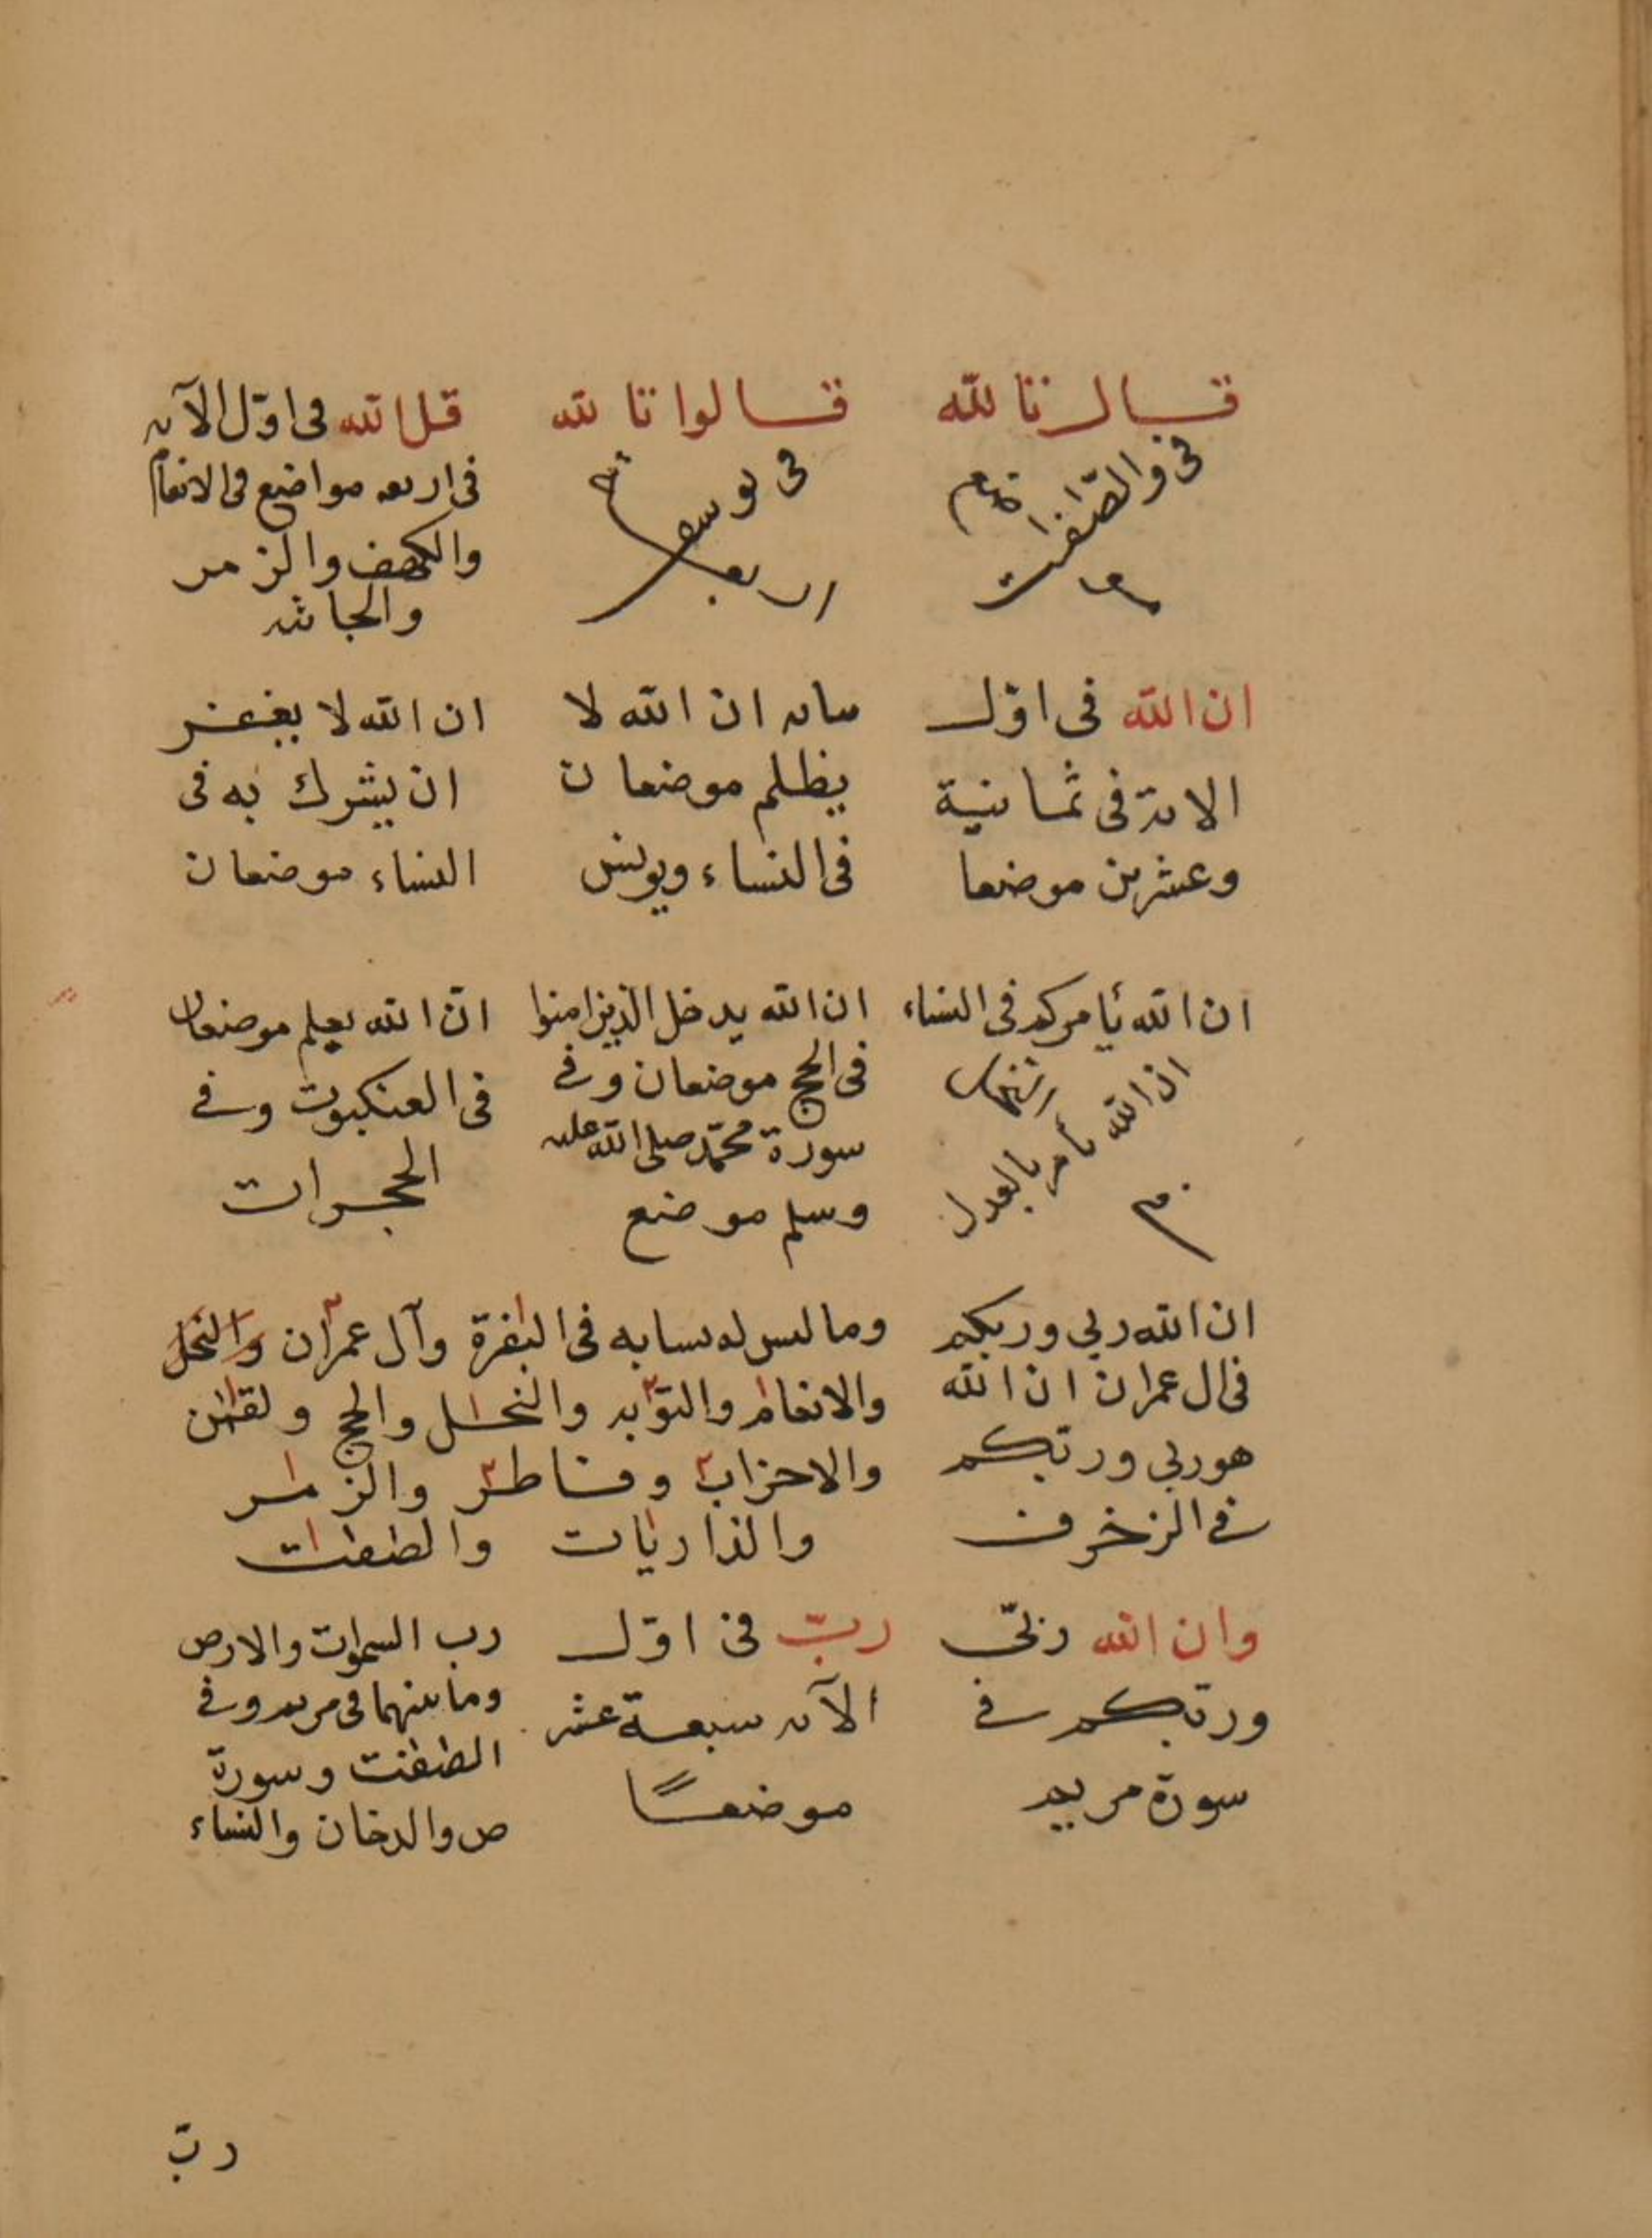 قال تالله
فى والصّافات
قالوا تالله
فى يوسف
اربعة
قل الله فى اوّل الآية
فى اربعه مواضع فى الانعام
والكهف والزمر
والجاثيه
ان الله فى اوّل
الاية فى ثمانية
وعشرين موضعا
بيانه ان الله لا
يظلم موضعان
فى النساء ويونس
ان الله لا يغفر
ان يشرك به فى
النساء موضعان
ان الله يأمركم فى النساء
ان الله يأمر بالعدل
ان الله يدخل الذين امنوا
فى الحج موضعان وفى
سورة محمّد صلى الله عليه
وسلم موضع
انّ الله يعلم موضعان
فى العنكبوت وفى
الحجرات
ان الله ربى وربكم
فى ال عمران ان الله
هو ربى وربكم
فى الزخرف
وما ليس له بيانه فى البقرة وآل عمران والنحل
والانعام والتوبه والنحل والحج ولقمن
والاحزاب وفاطر والزمر
والذاريات والصفت
وان الله ربّى
وربكم فى
سورة مريم
ربّ فى اوّل
الآيه سبعة عشر
موضعًا
رب السموات والارض
وما بينهما فى مريم وفى
الصفت وسورة
ص والدخان والنساء
ربّ